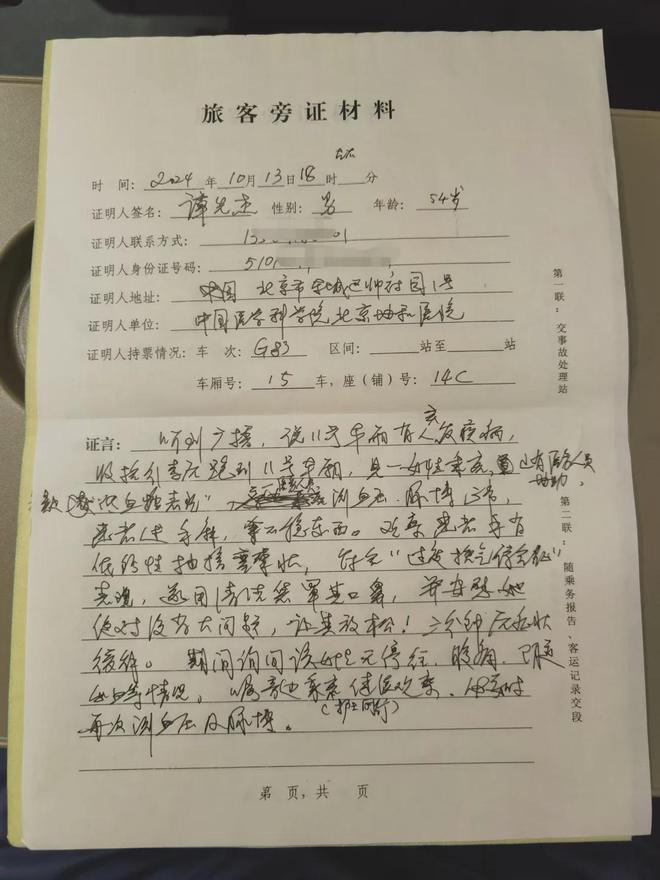 旅客旁证材料
左右
时 间: 2024 年 10 月 13 日 18 时 分
证明人签名: 谭先杰 性别: 男 年龄: 54岁
证明人联系方式:
证明人身份证号码: 5101
证明人地址: 中国 北京市东城区帅府园1号
证明人单位: 中国医学科学院北京协和医院
证明人持票情况: 车 次: G83 区间: 站至 站
车厢号: 15 车, 座(铺)号: 14C
证言: 听到广播, 说11号车厢有人突发疾病,
收拾行李后跑到11号车厢, 见一女性乘客, 已有医务人员
协助,
低血糖表现" 医务人员 测血压、脉搏正常,
患者述手麻, 拿不稳东西。观察患者手有
低钙性抽搐 症状, 符合"过度换气综合征"
表现, 遂用清洁袋罩其口鼻, 并安慰她
绝对没有大问题, 让其放松! 三分钟后症状
缓解。期间询问该女士无停经、腹痛、
等情况。嘱 继续观察、
再次测血压及脉搏。
第 页, 共 页
第一联: 交事故处理站
第二联: 随乘务报告、客运记录交段